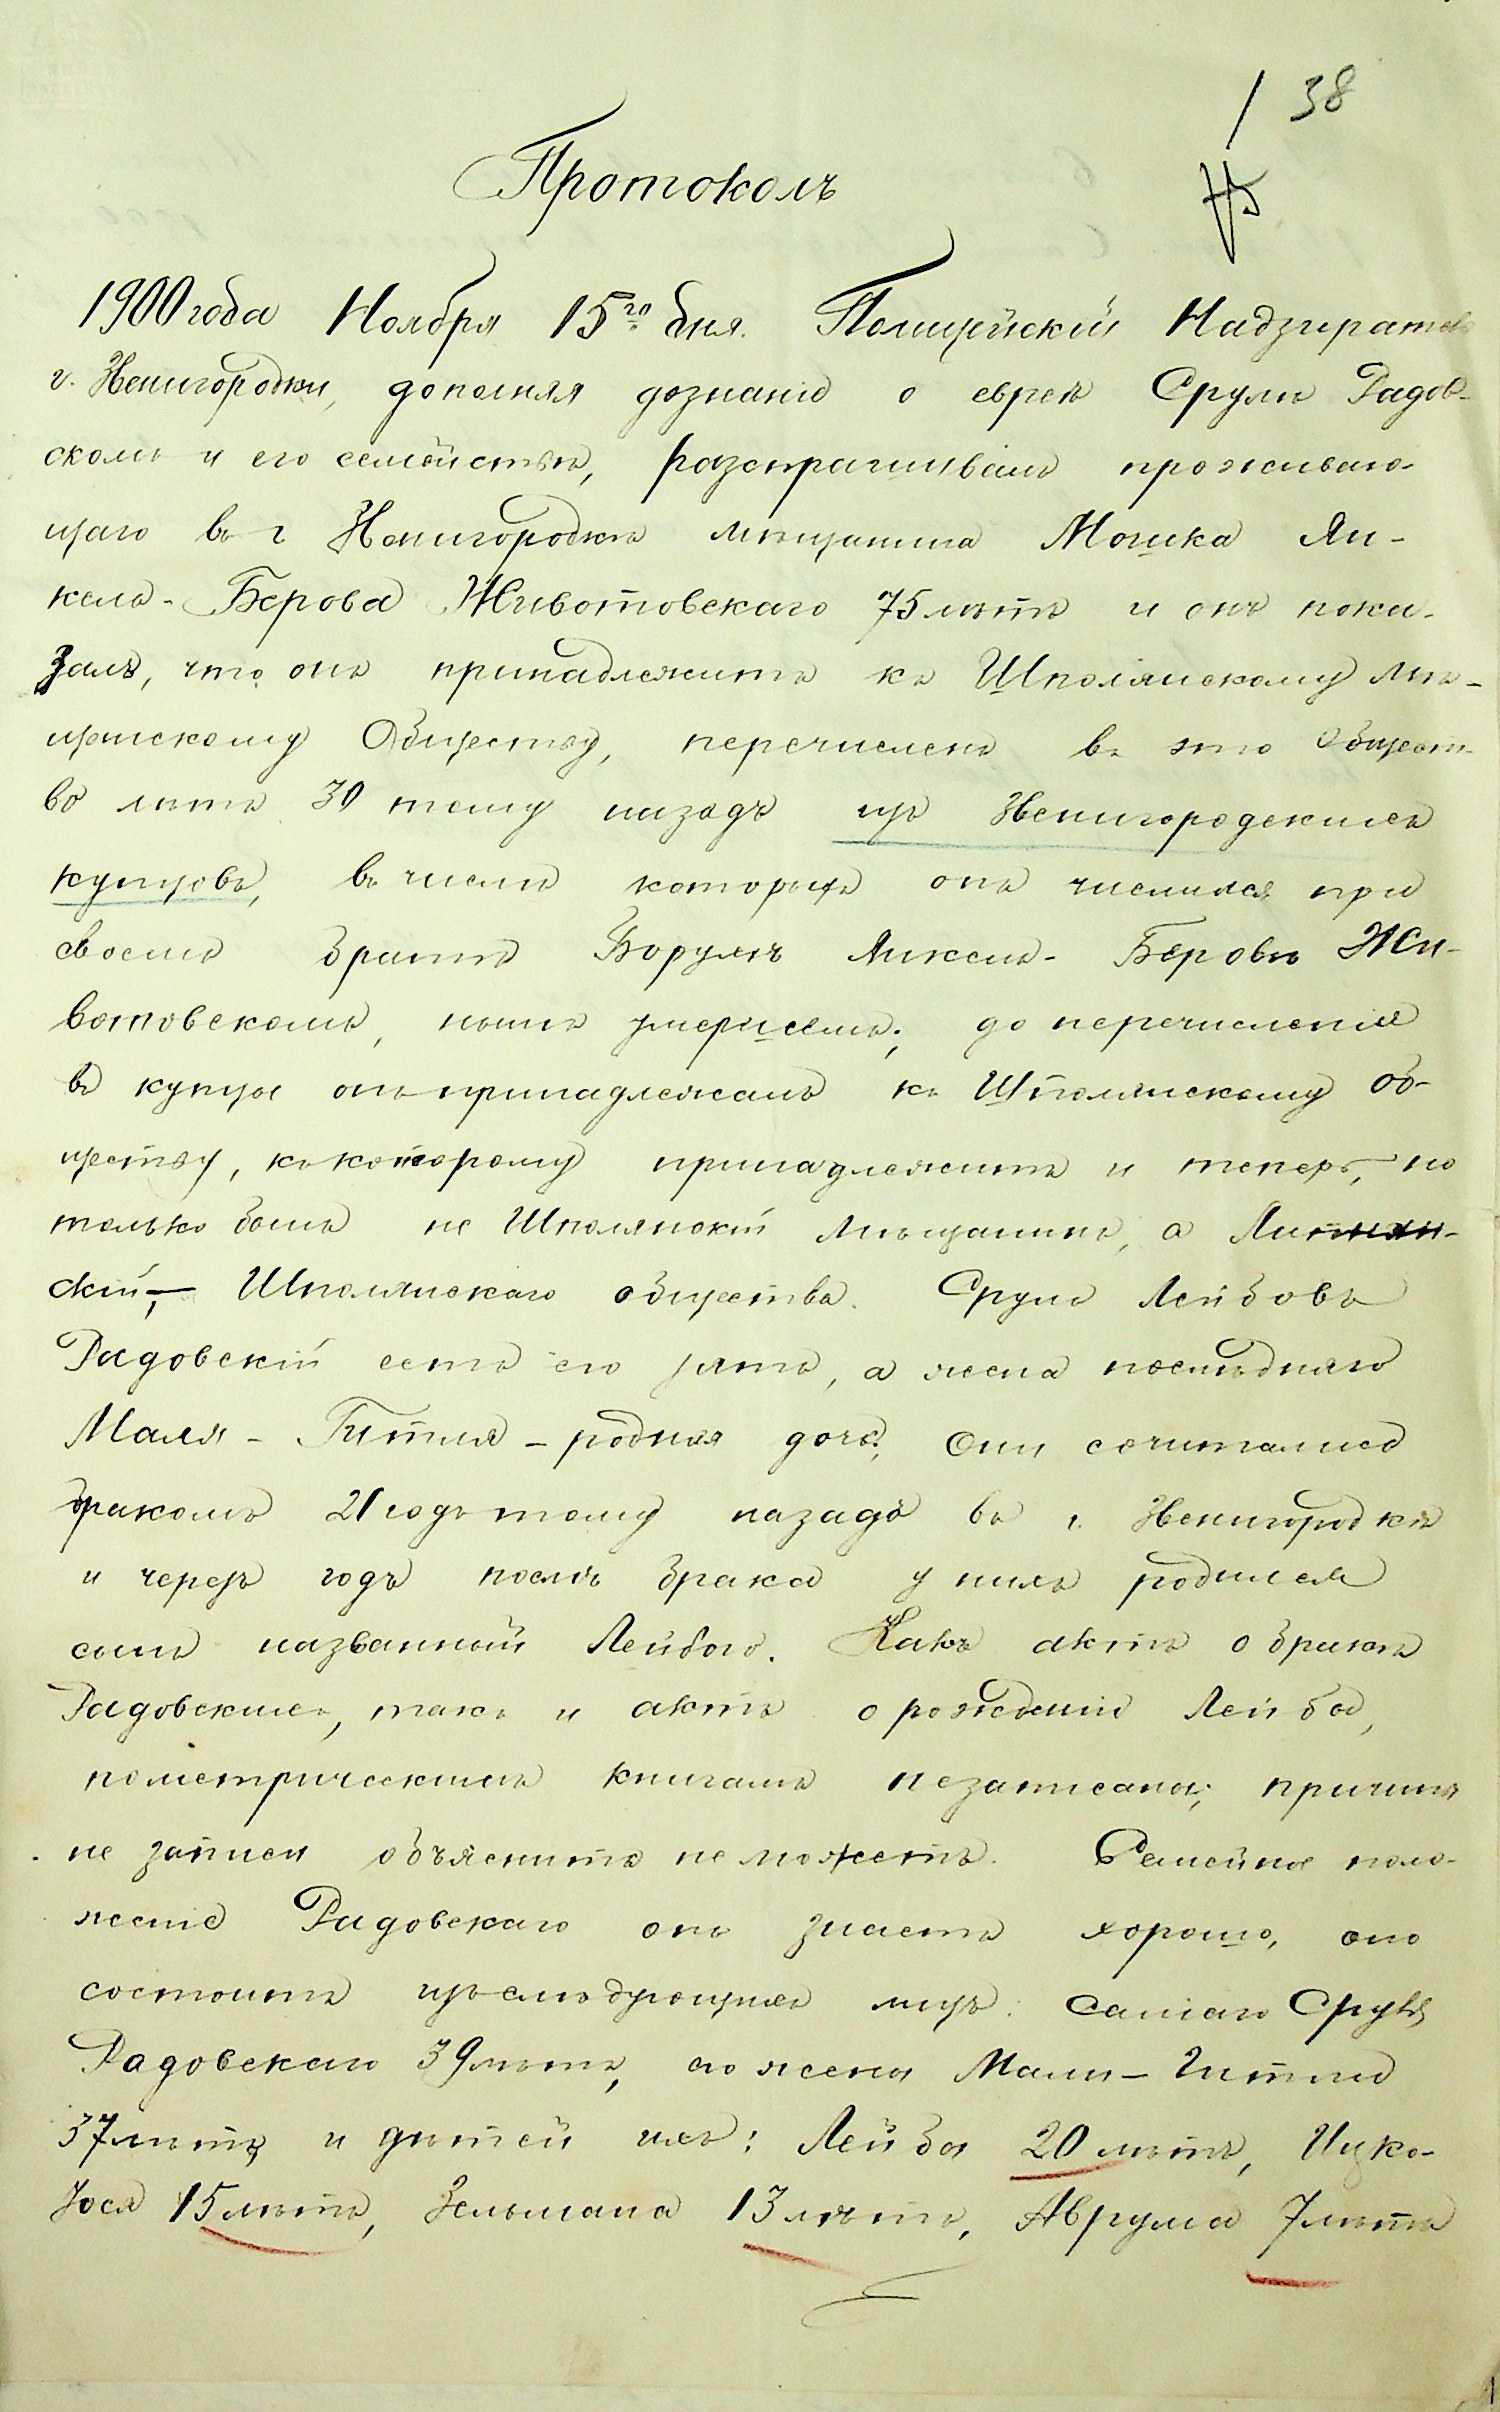 38
Протоколъ
1900 года Ноября 15го дня. Полицейскій Надзиратель
г. Звенигородки, дополняя дознаніе о евреѣ Срулѣ Радов-
скомъ и его семействѣ, разспрашивалъ проживаю-
щаго въ г Звенигородкѣ мѣщанина Мошка Ян-
келя-Берова Животовскаго 75 лѣтъ и онъ пока-
залъ, что онъ принадлежитъ къ Шполянскому мѣ-
щанскому Обществу, перечисленъ въ это Общест-
во лѣтъ 30 тому назадъ изъ Звенигородскихъ
купцовъ, въ числѣ которыхъ онъ числился при
своемъ братѣ Борулѣ Янкель-Беровѣ Жи-
вотовскомъ, нынѣ умершемъ; до перечисленія
въ купцы онъ принадлежалъ къ Шполянскому об-
ществу, къ которому принадлежитъ и теперь, но
только былъ не Шполянскій мѣщанинъ, а
скій, Шполянскаго общества. Сруль Лейбовъ
Радовскій есть его зять, а жена послѣдняго
Маля-Гитля - родная дочь. Они сочитались
бракомъ 21 годъ тому назадъ въ г. Звенигородкѣ
и черезъ годъ послѣ брака у нихъ родился
сынъ названный Лейбою. Какъ актъ о бракѣ
Радовскихъ, такъ и актъ о рожденіи Лейбы,
по метрическимъ книгамъ незаписаны; причинъ
не записи объяснить не можетъ. Семейное поло-
женіе Радовскаго онъ знаетъ хорошо, оно
состоитъ изъ слѣдующихъ лицъ: самаго Сруля
Радовскаго 39 лѣтъ, его жены Мали-Гитли
37 лѣтъ и дѣтей ихъ: Лейбы 20 лѣтъ, Ицко-
Іося 15 лѣтъ, Зельмана 13 лѣтъ, Аврума 7 лѣтъ